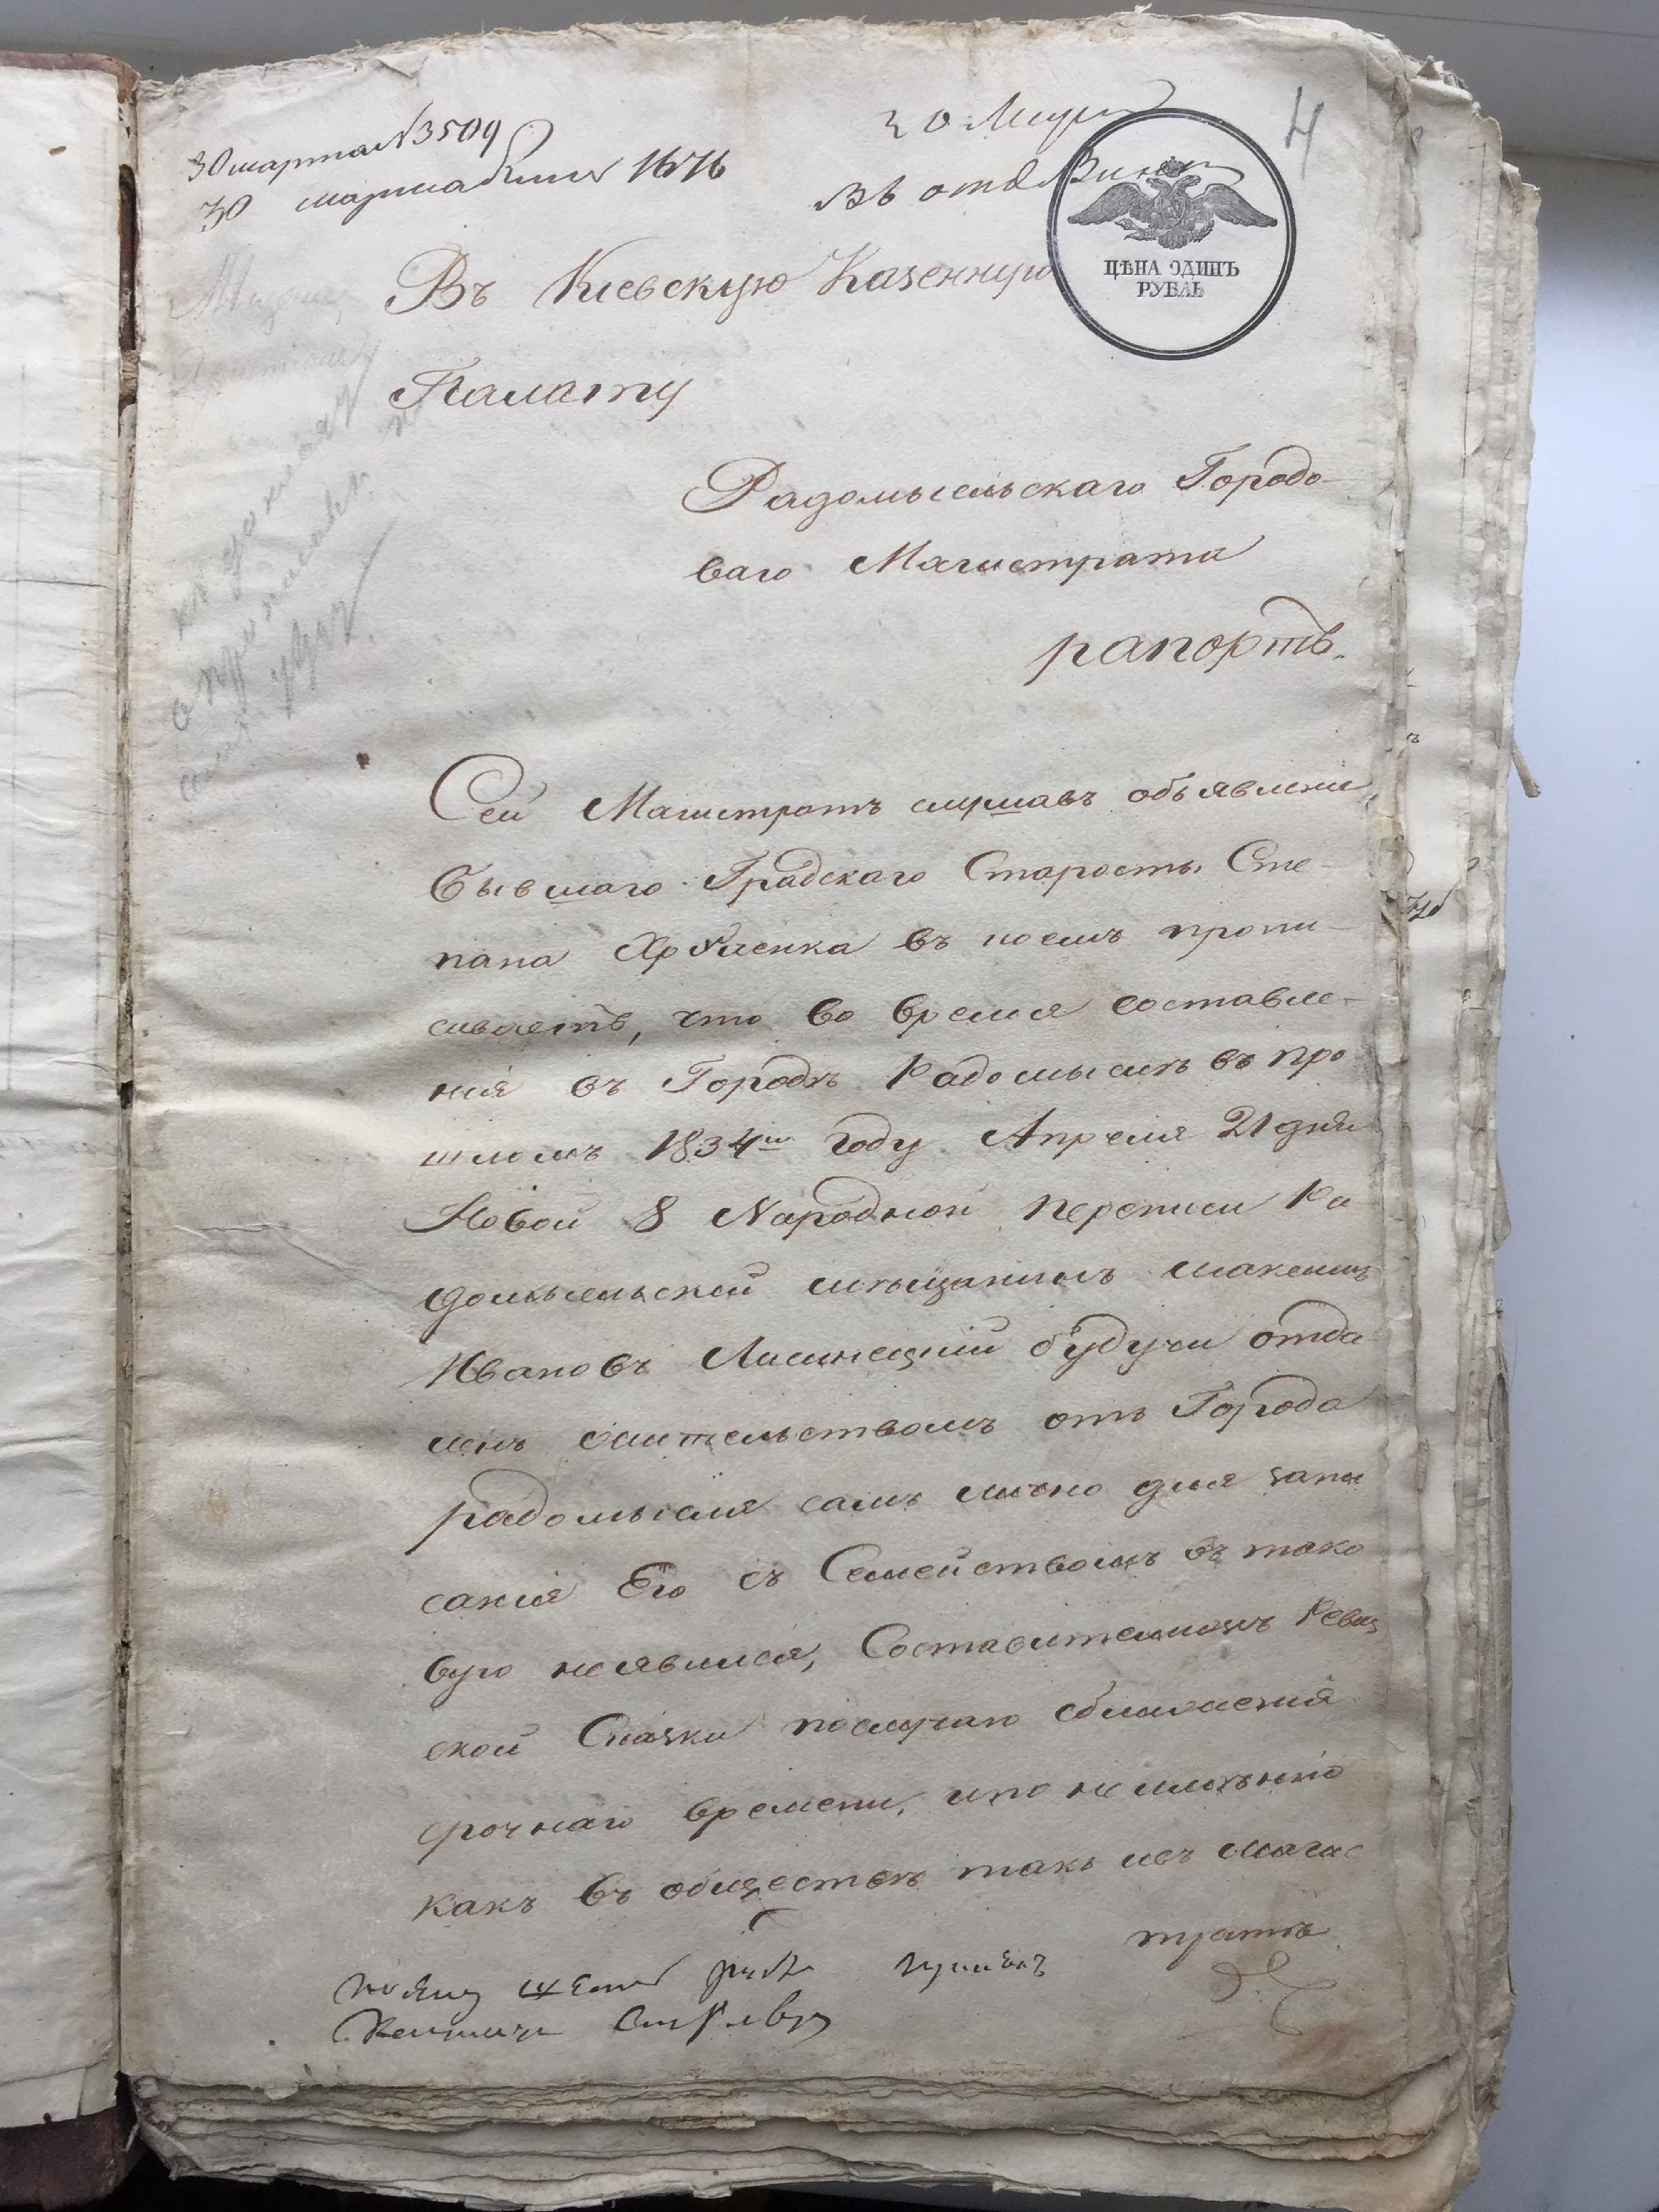 30 марта №3509
30 марта 1676
20 Мар
Въ отд
4
ЦѢНА ОДИНЪ
РУБЛЬ
Въ Кіевскую Казенную
Палату
Радомысльскаго Городо-
ваго Магистрата
рапортъ.
Сей Магистратъ слушавъ объявленіе
бывшаго Градскаго Старосты Сте-
пана въ коемъ пропи-
сываетъ, что во время составле-
нія въ Городѣ Радомыслѣ въ про
шломъ 1834мъ году Апреля 21 дня
Новой 8 Народной переписи Ра
домысльской мѣщанинъ Максимъ
Ивановъ Лисинецкій будучи отда
ленъ жительствомъ отъ Города
радомысля самъ лично для запи
санія Его съ Семействомъ въ тако
вую неявился, Составителямъ Ревиз
ской Сказки послучаю сближенія
срочнаго времени, ипо неимѣнію
какъ въ обществѣ такъ ивъ магис
тратѣ